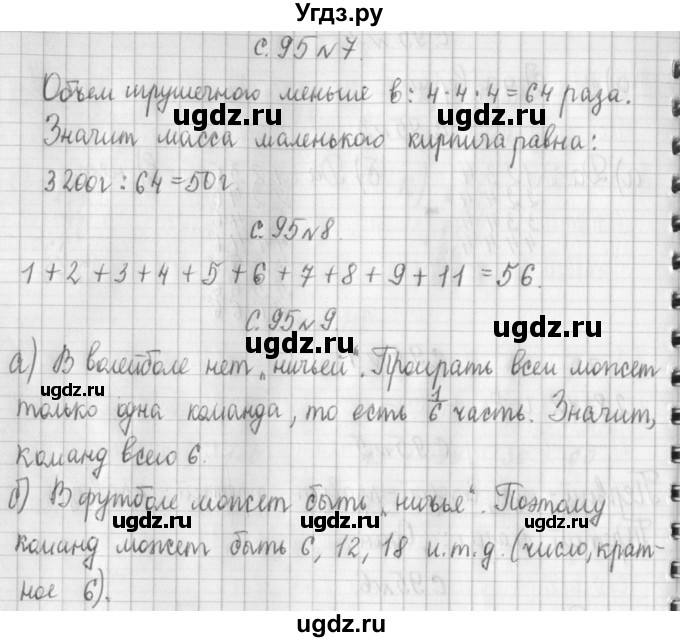 Угдз.ру
с. 95 № 7.
Объем игрушечного меньше в: 4 · 4 · 4 = 64 раза.
ugdz.ru ugdz.ru
Значит масса маленького кирпича равна:
3200г : 64 = 50г.
ugdz.ru ugdz.ru
с. 95 № 8.
1 + 2 + 3 + 4 + 5 + 6 + 7 + 8 + 9 + 11 = 56.
с. 95 № 9.
ugdz.ru ugdz.ru
а) В волейболе нет „ничьей“. Проирать всем может
ugdz.ru ugdz.ru
только одна команда, то есть 1/6 часть. Значит,
команд всего 6.
б) В футболе может быть „ничья“. Поэтому
ugdz.ru ugdz.ru
команд может быть 6, 12, 18 и. т. д. (число, крат-
ное 6).
ugdz.ru ugdz.ru